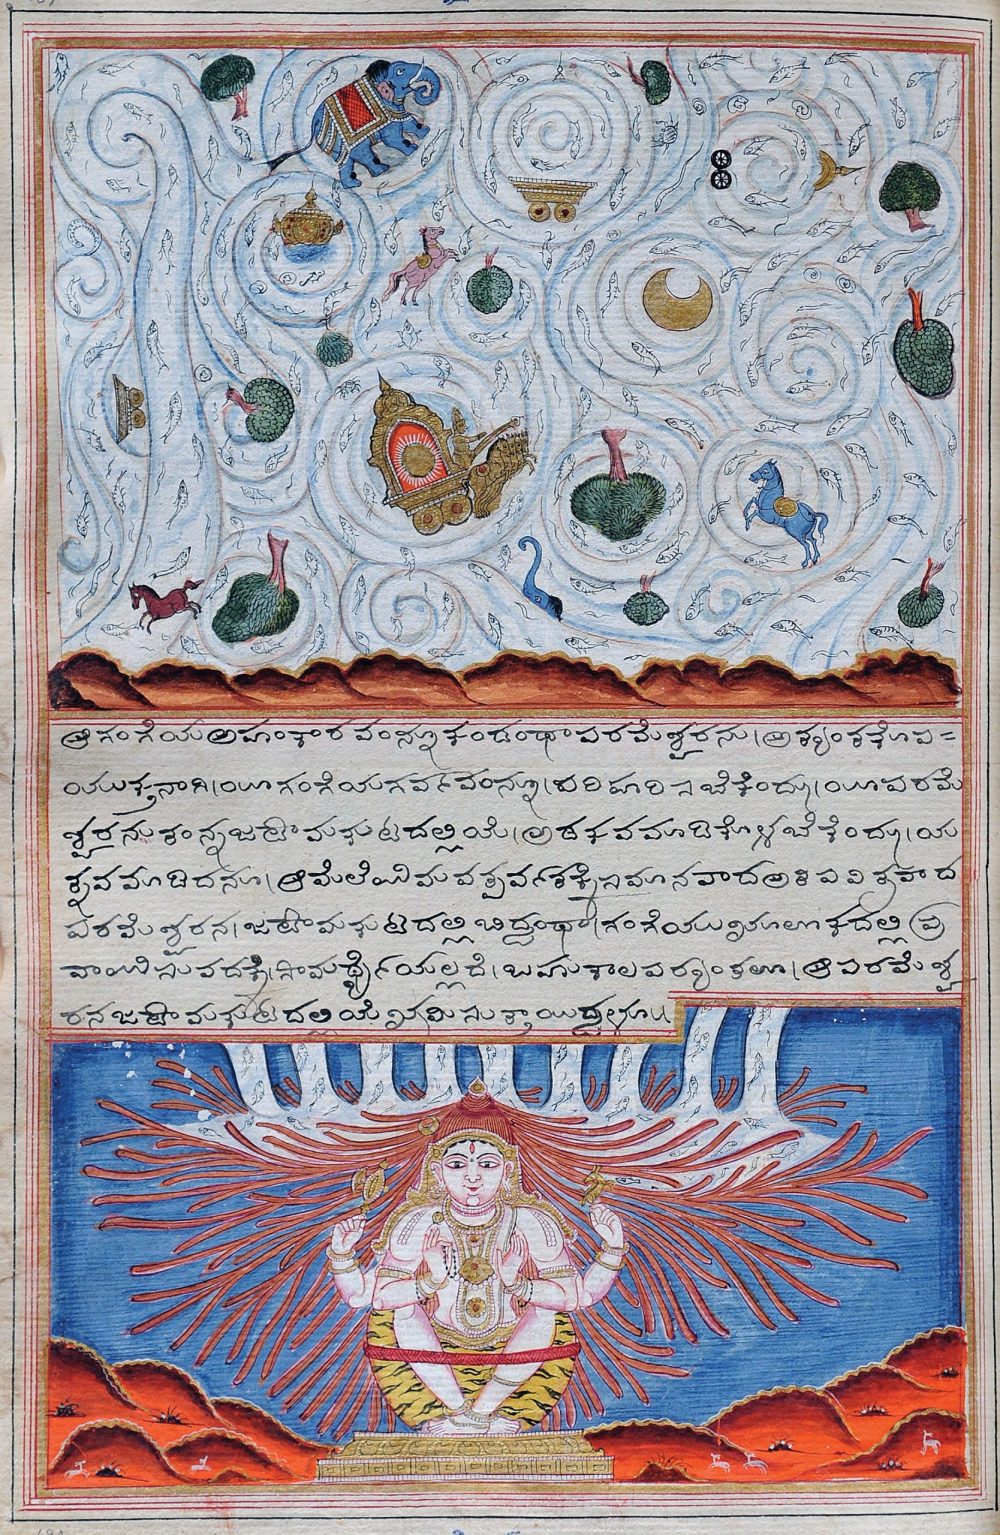 ಆ ಗಂಗೆಯ ಅಹಂಕಾರವಂನ್ನೂ ಕಂಡಂಥಾ ಪರಮೇಶ್ವರನು। ಅತ್ಯಂತಕೋಪ=
ಯುಕ್ತನಾಗಿ।ಯೀ ಗಂಗೆಯ ಗರ್ವವಂನ್ನೂ। ಪರಿಹರಿಸಬೇಕೆಂದ್ದು।ಯೀ ಪರಮೇ
ಶ್ವರನು ತಂನ್ನ ಜಟಾಮಕುಟದಲ್ಲಿಯೆ। ಅಡಕವ ಮಾಡಿಕೊಳಬೇಕೆಂದ್ದು। ಯ
ತ್ನವ ಮಾಡಿದನೂ। ಆ ಮೇಲೆ ಹಿಮವತ್ಪರ್ವತಕ್ಕೆ ಸಮಾನವಾದ ಅತಿಪವಿತ್ರವಾದ
ಪರಮೇಶ್ವರನ। ಜಟಾಮಕುಟದಲ್ಲಿ ಬಿದ್ದಂಥಾ।ಗಂಗೆಯು ಭೂಲೋಕದಲ್ಲಿ ಪ್ರ
ವಾಹಿಸುವದಕ್ಕೆ।ಸಾಮರ್ಥ್ಯೆಯಿಲ್ಲದೆ। ಬಹುಕಾಲಪರ್ಯಂತಲೂ। ಆ ಪರಮೇಶ್ವ
ರನ ಜಟಾಮಕುಟದಲ್ಲಿಯೆ ಭ್ರಮಿಸುತ್ತಾಯಿದ್ದಳೂ॥